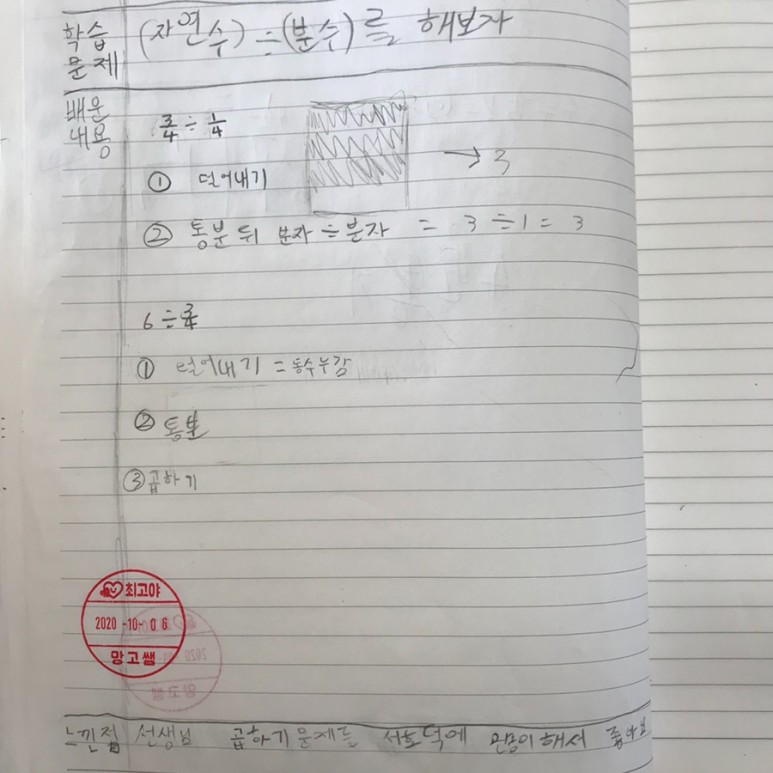 학습 문제 (자연수) ÷ (분수)를 해보자
배운 내용
3/4 ÷ 1/4
① 덜어내기 → 3
② 통분 뒤 분자 ÷ 분자 = 3 ÷ 1 = 3
6 ÷ 3/4
① 덜어내기 = 동수누감
② 통분
③ 곱하기
최고야
2020 -10- 06
망고쌤
느낀점 선생님 곱하기 문제를